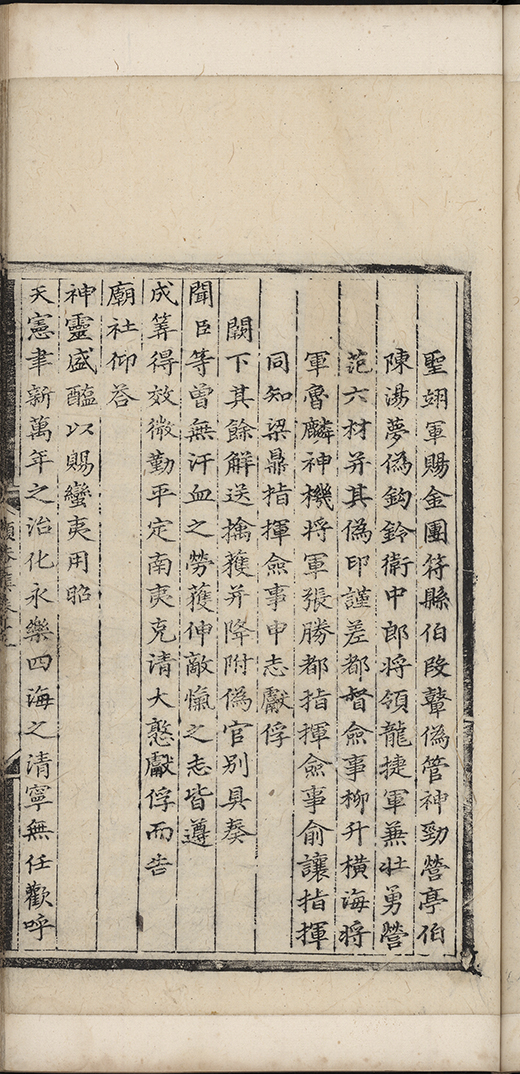 聖翊軍賜金團符縣伯段䡩偽管神勁營亭伯
陳湯夢偽鈎鈐衛中郎將領龍捷軍兼壯勇營
范六材并其偽印謹差都督僉事柳升橫海將
軍魯麟神機將軍張勝都指揮僉事俞讓指揮
同知梁鼎指揮僉事申志獻俘
闕下其餘解送擒獲并降附偽官別具奏
聞臣等曾無汗血之勞獲伸敵愾之志皆遵
成筭得效微勤平定南夷克清大憝獻俘而告
廟社仰荅
神靈盛醢以賜蠻夷用昭
天憲聿新萬年之治化永樂四海之清寧無任歡呼